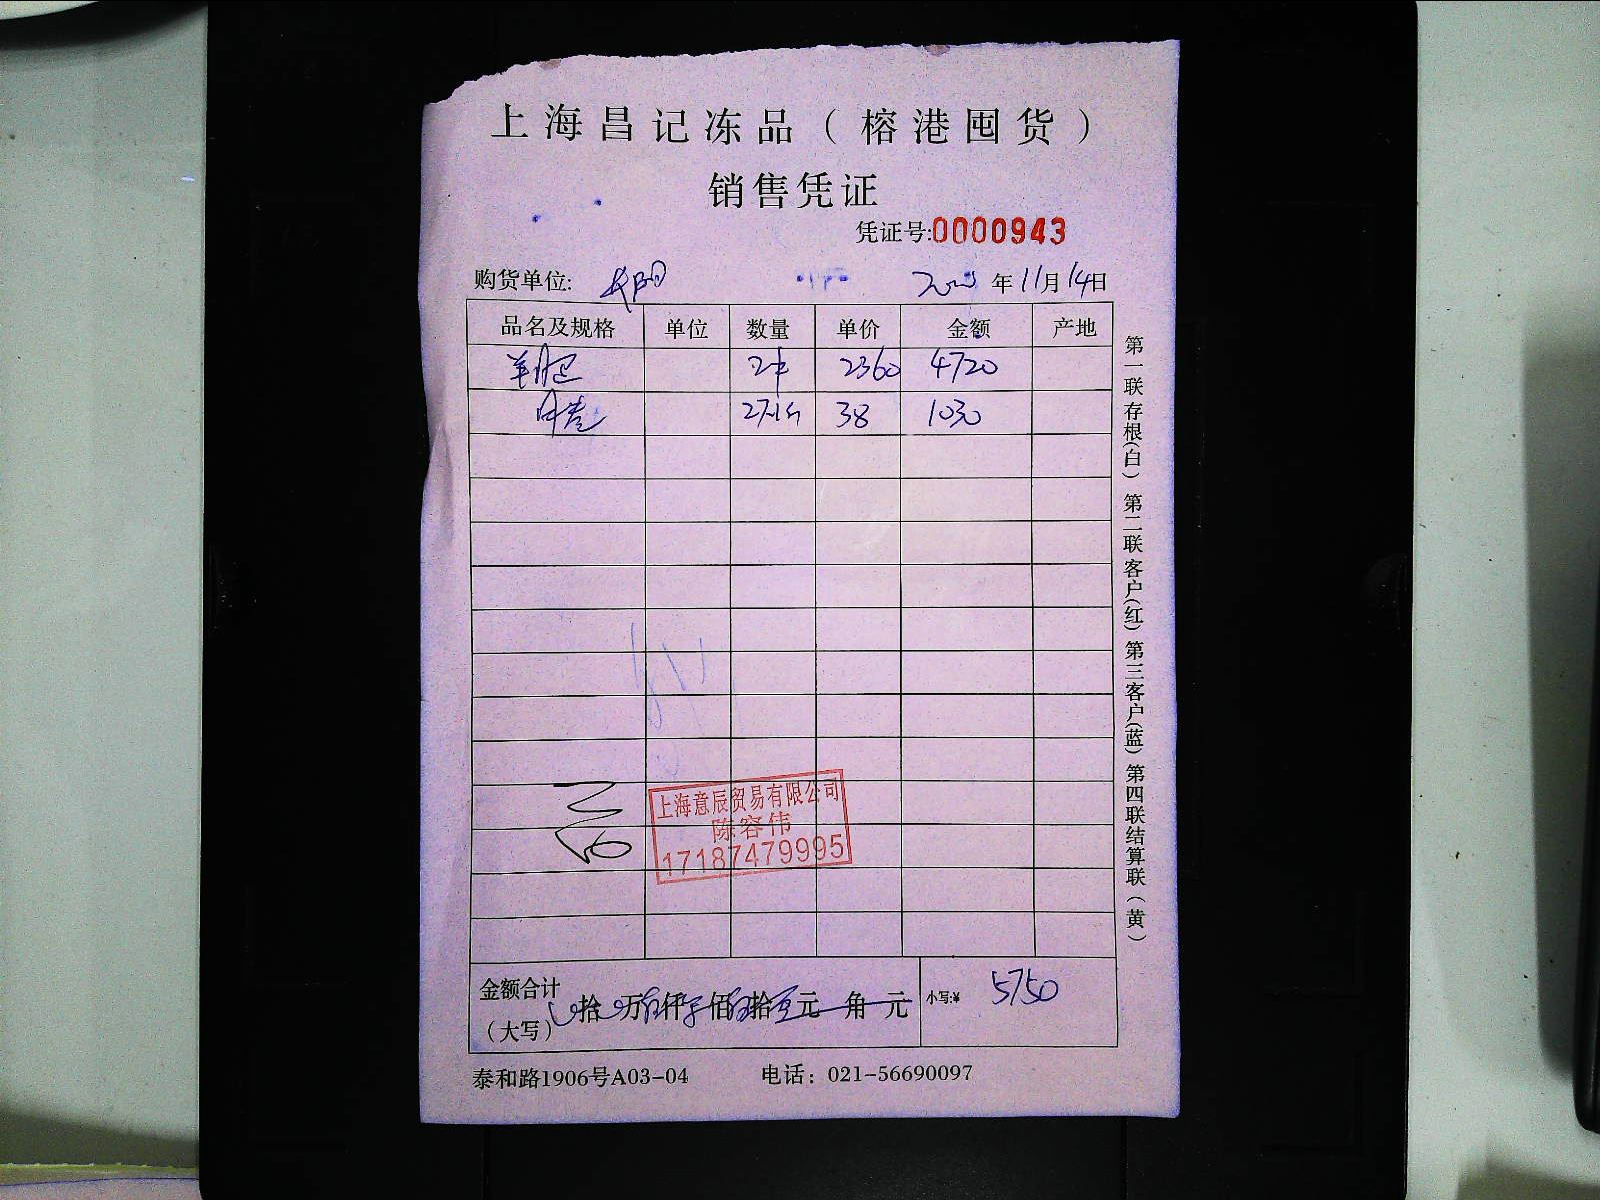 上海昌记冻品（榕港囤货）
销售凭证
凭证号:0000943
购货单位: 年11月14日
品名及规格 单位 数量 单价 金额 产地
羊 2件 2360 4720
38 1030
上海意辰贸易有限公司
陈容伟
17187479995
金额合计
（大写） 拾 万 仟 佰 拾 元 角 元 小写:¥ 5750
泰和路1906号A03-04 电话：021-56690097
第一联存根(白) 第二联客户(红) 第三客户(蓝) 第四联结算联(黄)